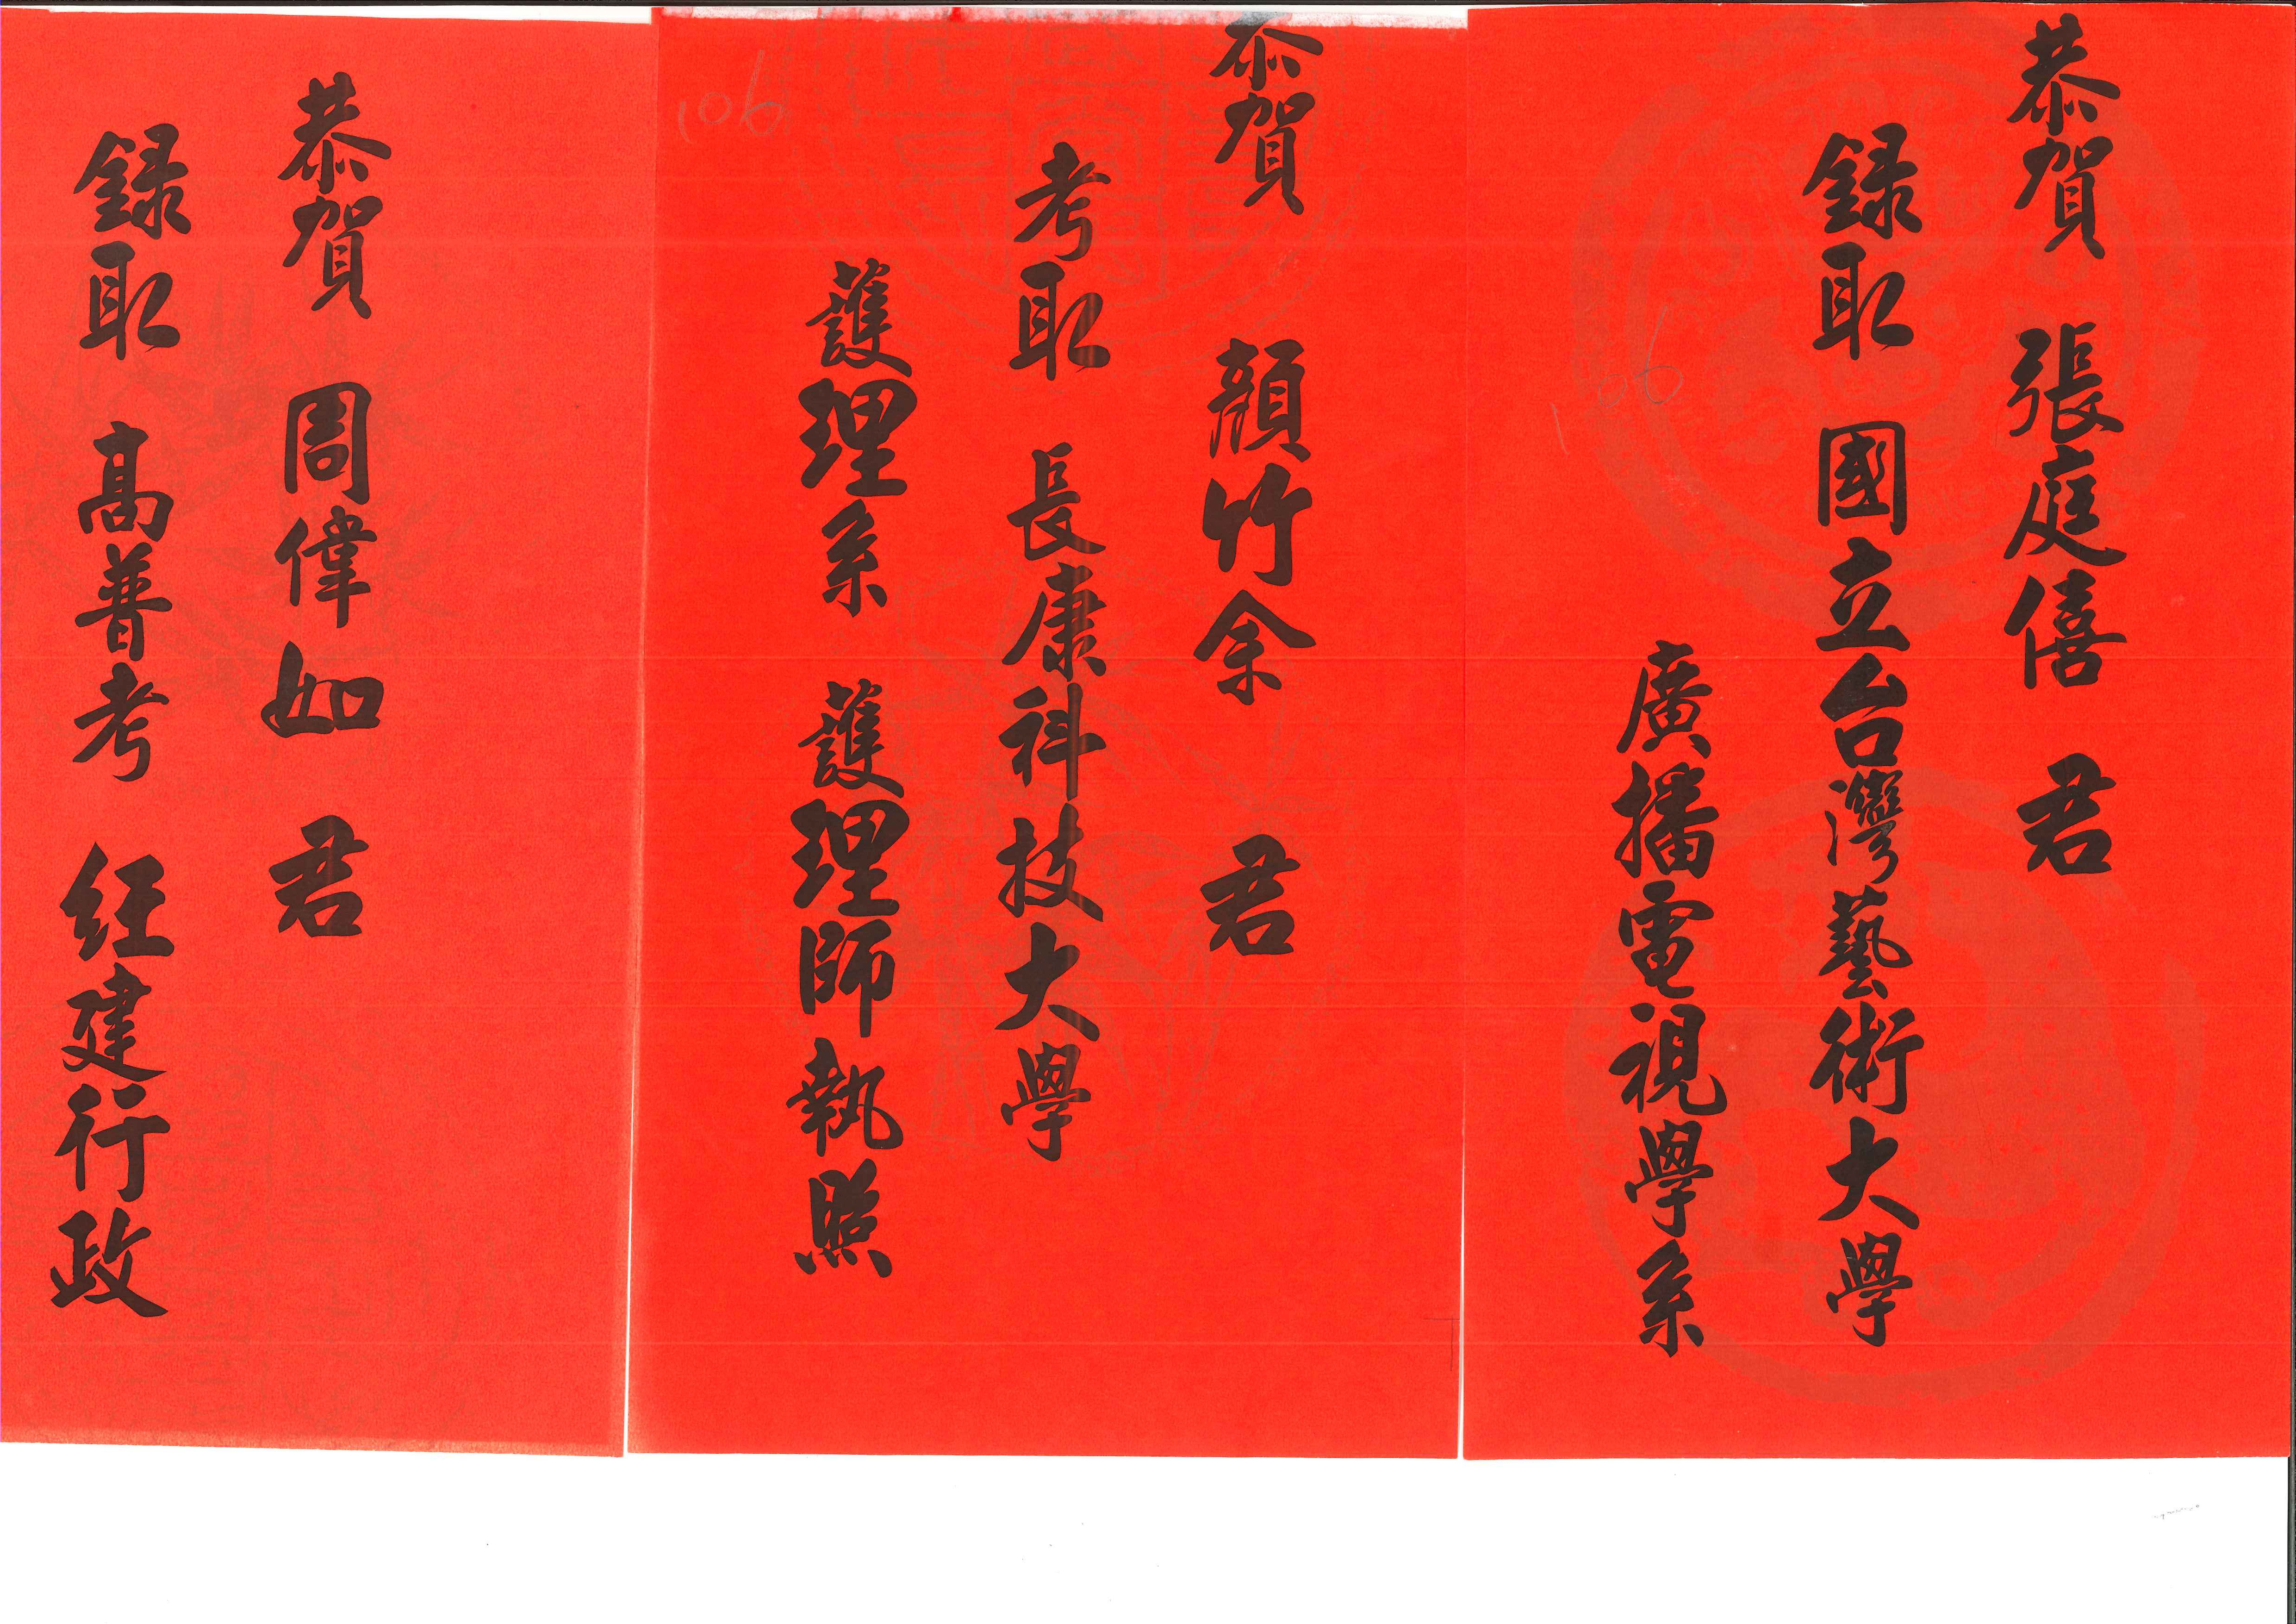 恭賀 張庭僖 君
録取 國立台灣藝術大學
廣播電視學系
106
恭賀 顏竹余 君
考取 長庚科技大學
護理系 護理師執照
106
恭賀 周偉如 君
録取 高普考 經建行政